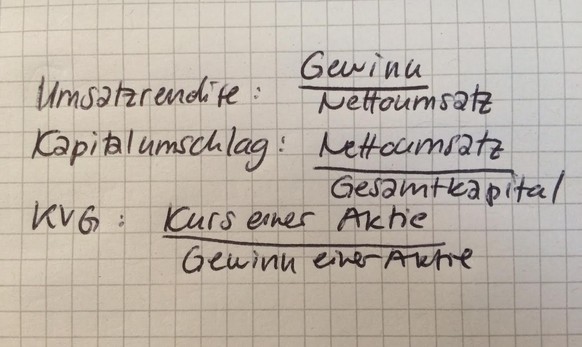 Umsatzrendite: Gewinn
Nettoumsatz
Kapitalumschlag: Nettoumsatz
Gesamtkapital
KVG: Kurs einer Aktie
Gewinn einer Aktie